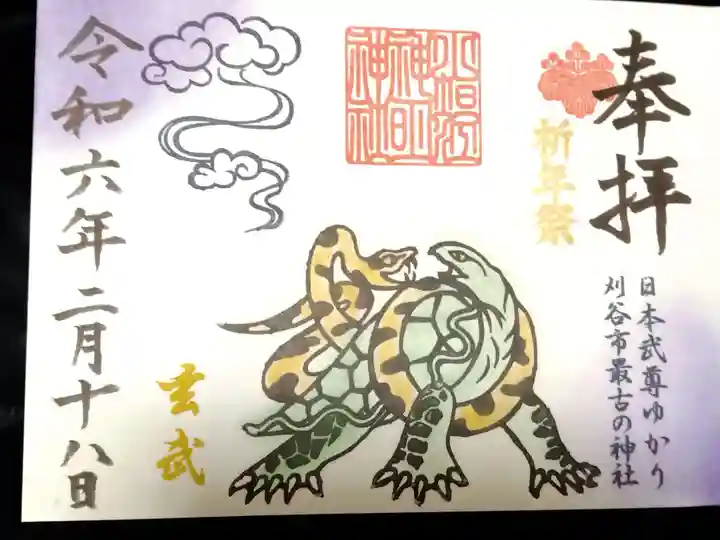 奉拝
祈年祭
日本武尊ゆかり
刈谷市最古の神社
玄武
令和六年二月十八日